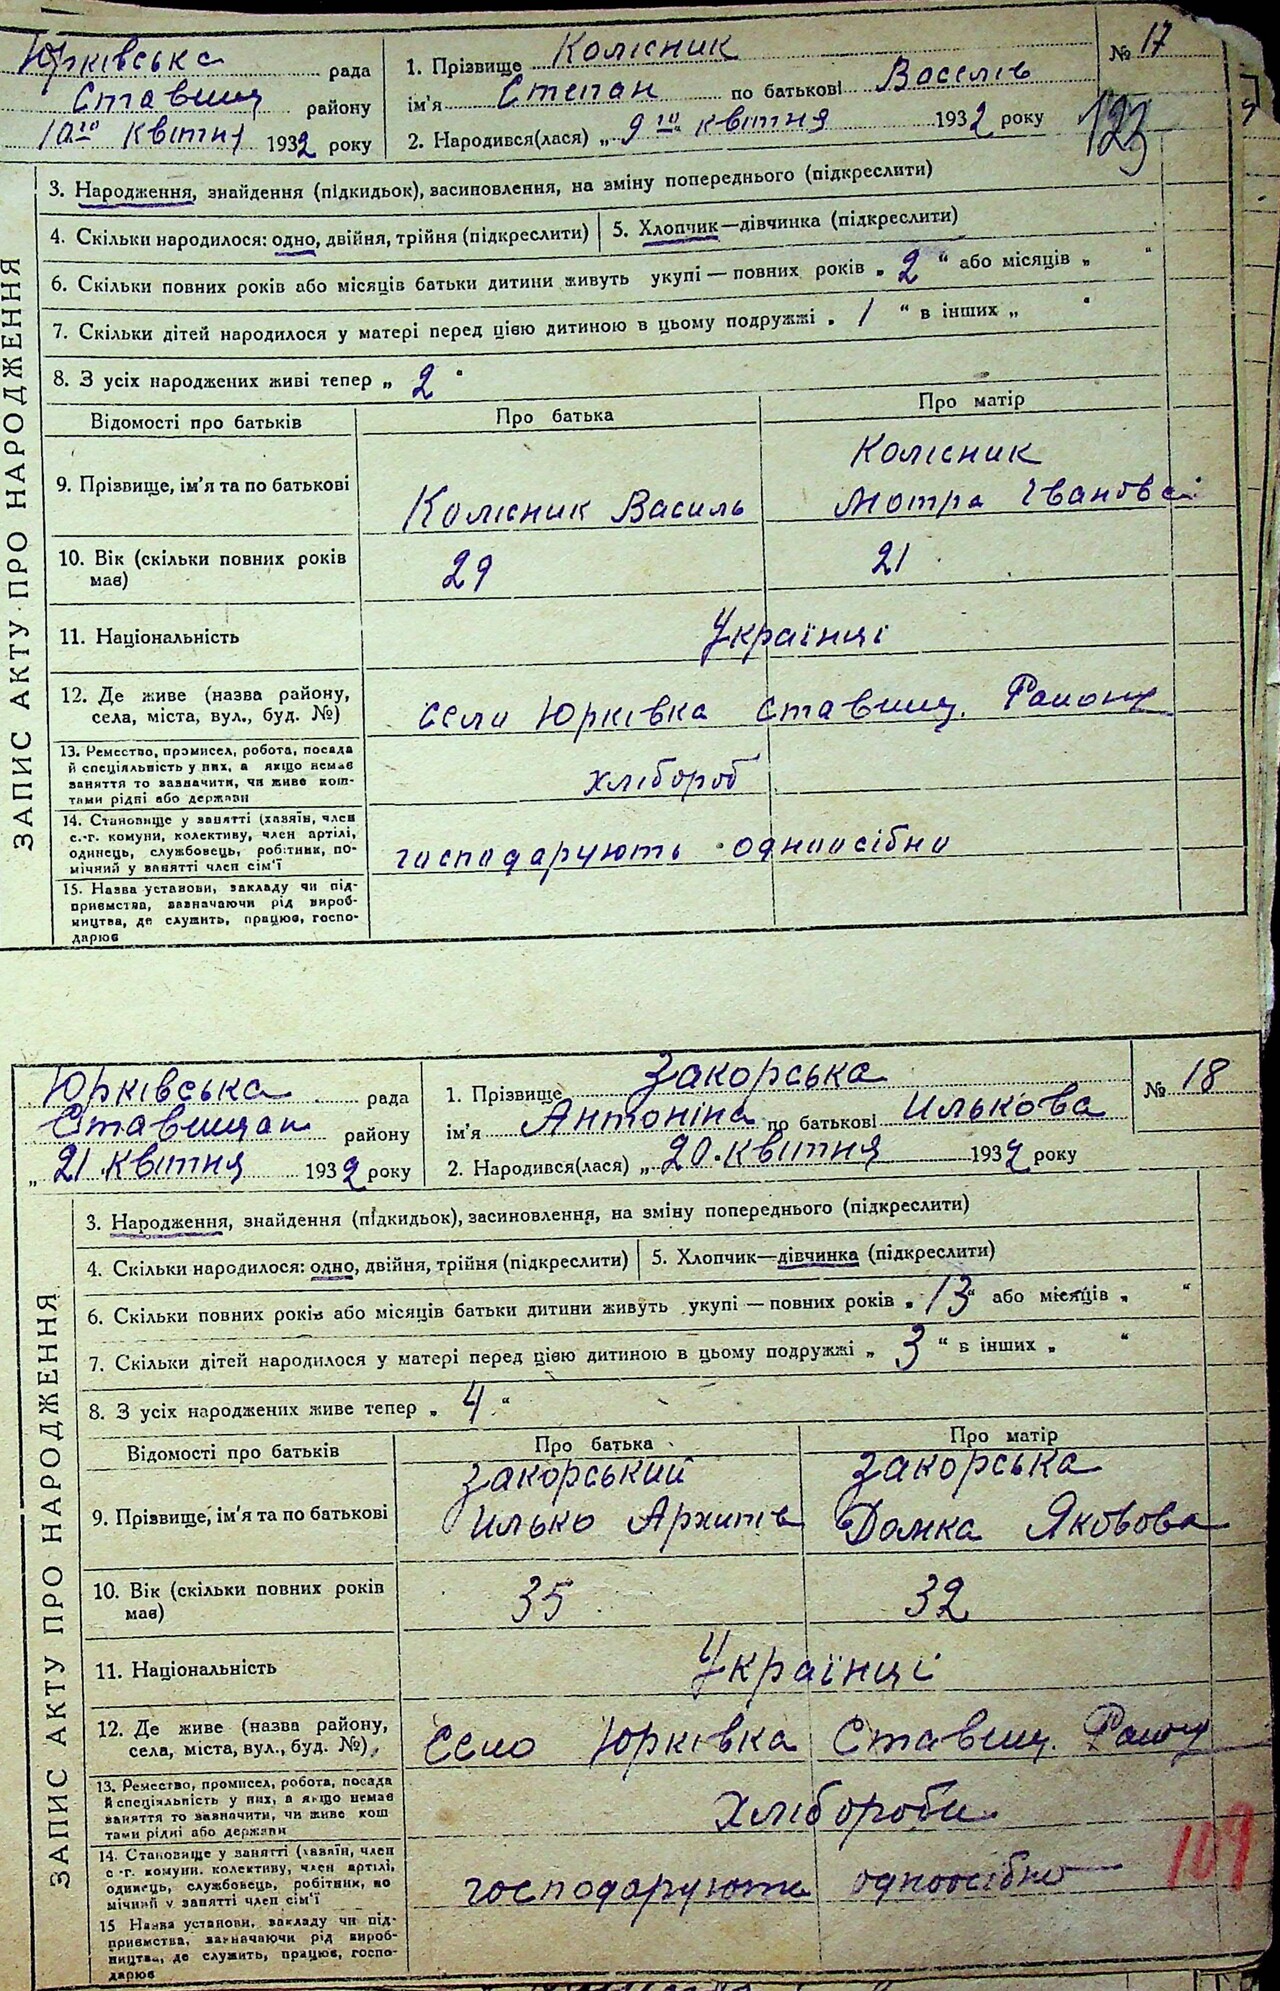 Юрківська рада
Ставищ району
10го квітня 1932 року
1. Прізвище Колісник
ім'я Степан по батькові Василів
2. Народився(лася) „ 9го квітня 1932 року
№ 17
123
ЗАПИС АКТУ ПРО НАРОДЖЕННЯ
3. Народження, знайдення (підкидьок), засиновлення, на зміну попереднього (підкреслити)
4. Скільки народилося: одно, двійня, трійня (підкреслити) 5. Хлопчик—дівчинка (підкреслити)
6. Скільки повних років або місяців батьки дитини живуть укупі — повних років „ 2 “ або місяців „ “
7. Скільки дітей народилося у матері перед цією дитиною в цьому подружжі „ 1 “ в інших „ “
8. З усіх народжених живі тепер „ 2 “
Відомості про батьків Про батька Про матір
9. Прізвище, ім'я та по батькові
Колісник Василь
Колісник
Мотра Іванова
10. Вік (скільки повних років має)
29 21
11. Національність Українці
12. Де живе (назва району, села, міста, вул., буд. №)
село Юрківка Ставищ. Району
13. Ремество, промисел, робота, посада
й спеціяльність у них, а якщо немає
заняття то зазначити, чи живе кош-
тами рідні або держави
хлібороб
14. Становище у занятті (хазяїн, член
с.-г. комуни, колективу, член артілі,
одинець, службовець, робітник, по-
мічний у занятті член сім'ї
господарують одноосібно
15. Назва установи, закладу чи під-
приємства, зазначаючи рід вироб-
ництва, де служить, працює, госпо-
дарює
Юрківська рада
району
„ 21 квітня 1932 року
1. Прізвище Закорська
ім'я Антоніна по батькові Илькова
2. Народився(лася) „ 20 квітня 1932 року
№ 18
ЗАПИС АКТУ ПРО НАРОДЖЕННЯ
3. Народження, знайдення (підкидьок), засиновлення, на зміну попереднього (підкреслити)
4. Скільки народилося: одно, двійня, трійня (підкреслити) 5. Хлопчик—дівчинка (підкреслити)
6. Скільки повних років або місяців батьки дитини живуть укупі — повних років „ 13 “ або місяців „ “
7. Скільки дітей народилося у матері перед цією дитиною в цьому подружжі „ 3 “ в інших „ “
8. З усіх народжених живе тепер „ 4 “
Відомості про батьків Про батька Про матір
9. Прізвище, ім'я та по батькові
Закорський
Илько
Закорська
Домка Яковова
10. Вік (скільки повних років має)
35 32
11. Національність Українці
12. Де живе (назва району, села, міста, вул., буд. №)
село Юрківка Ставищ. Району
13. Ремество, промисел, робота, посада
й спеціяльність у них, а якщо немає
заняття то зазначити, чи живе кош
тами рідні або держави
Хлібороби
14. Становище у занятті (хазяїн, член
с.-г. комуни. колективу, член артілі,
одинець, службовець, робітник, по
мічний у занятті член сім'ї
господарують одноосібно
15 Назва установи, закладу чи під-
приємства, зазначаючи рід вироб-
ництва, де служить, працює, госпо-
дарює
109